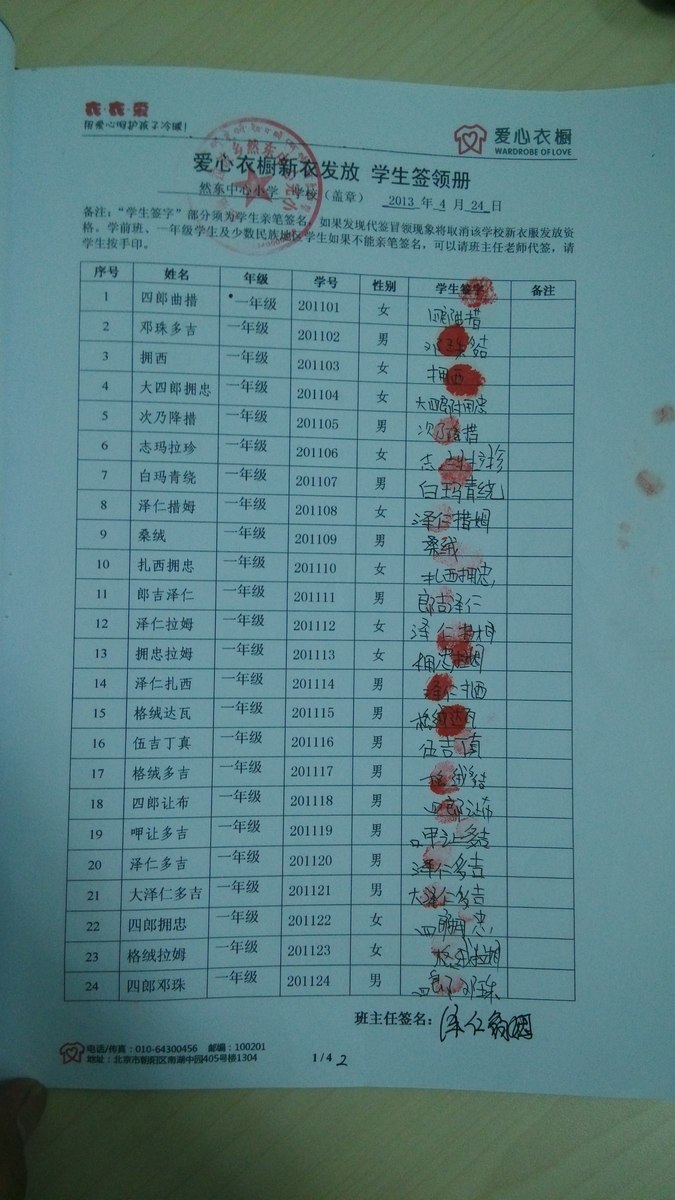 衣·衣·爱
用爱心呵护孩子冷暖!
爱心衣橱
WARDROBE OF LOVE
爱心衣橱新衣发放 学生签领册
然东中心小学 学校（盖章） 2013 年 4 月 24 日
备注：“学生签字”部分须为学生亲笔签名，如果发现代签冒领现象将取消该学校新衣服发放资
格。学前班、一年级学生及少数民族地区学生如果不能亲笔签名，可以请班主任老师代签，请
学生按手印。
序号 姓名 年级 学号 性别 学生签字 备注
1 四郎曲措 一年级 201101 女 四郎曲措
2 邓珠多吉 一年级 201102 男 邓珠多结
3 拥西 一年级 201103 女 拥西
4 大四郎拥忠 一年级 201104 女 大四郎拥忠
5 次乃降措 一年级 201105 男 次乃降措
6 志玛拉珍 一年级 201106 女 志玛拉珍
7 白玛青绕 一年级 201107 男 白玛青绕
8 泽仁措姆 一年级 201108 女 泽仁措姆
9 桑绒 一年级 201109 男 桑绒
10 扎西拥忠 一年级 201110 女 扎西拥忠
11 郎吉泽仁 一年级 201111 男 郎吉泽仁
12 泽仁拉姆 一年级 201112 女 泽仁拉姆
13 拥忠拉姆 一年级 201113 女 拥忠拉姆
14 泽仁扎西 一年级 201114 男 泽仁扎西
15 格绒达瓦 一年级 201115 男 格绒达瓦
16 伍吉丁真 一年级 201116 男 伍吉丁真
17 格绒多吉 一年级 201117 男 格绒多结
18 四郎让布 一年级 201118 男 四郎让布
19 呷让多吉 一年级 201119 男 呷让多结
20 泽仁多吉 一年级 201120 男 泽仁多吉
21 大泽仁多吉 一年级 201121 男 大泽仁多吉
22 四郎拥忠 一年级 201122 女 四郎拥忠
23 格绒拉姆 一年级 201123 女 格绒拉姆
24 四郎邓珠 一年级 201124 男 四郎邓珠
班主任签名: 泽仁
电话/传真：010-64300456 邮编：100201
地址：北京市朝阳区南湖中园405号楼1304
1 / 4 2